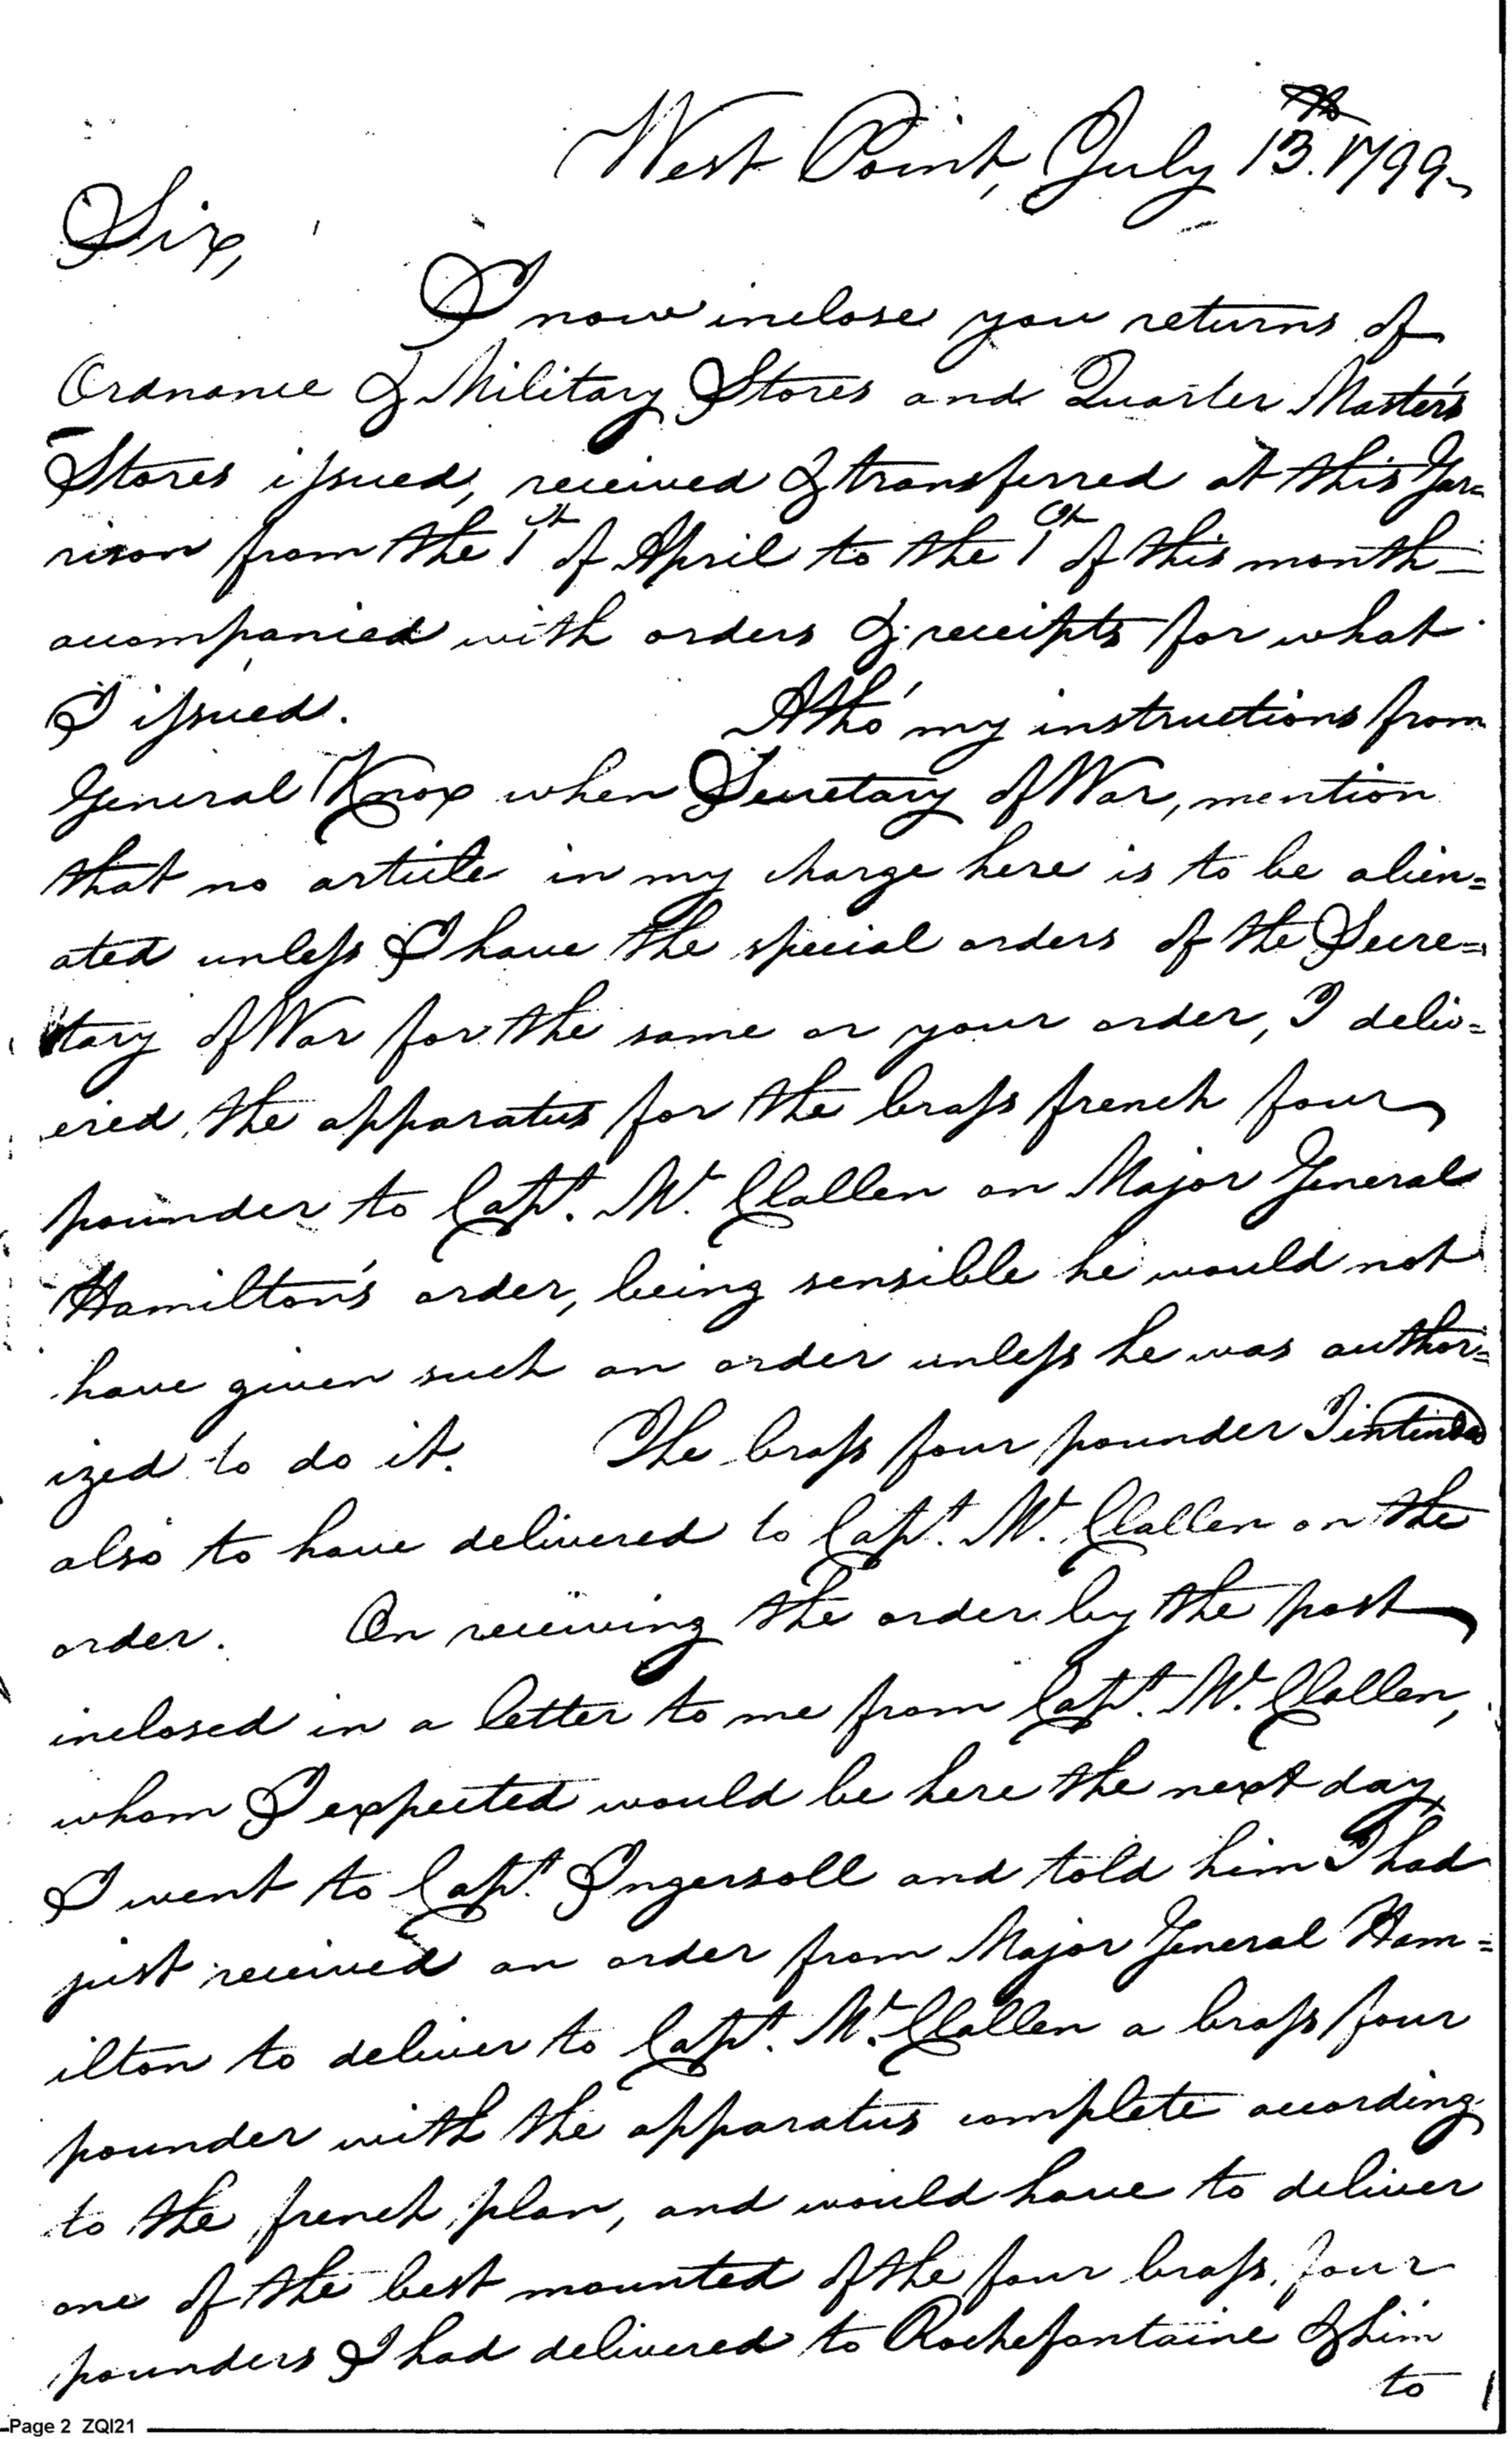 West Point, July 13th. 1799
Sir,
I now inclose you returns of
Ordnance & Military Stores and Quarter Master's
Stores issued, received & transferred at this Gar=
rison from the 1st of April to the 1st of this month
accompanied with orders & receipts for what
I issued. Altho' my instructions from
General Knox when Secretary of War, mention
that no article in my charge here is to be alien=
ated unless I have the special orders of the Secre=
tary of War for the same or your order, I deliv=
ered, the apparatus for the brass french four
pounder to Capt. Mc. Clallen on Major General
Hamilton's order, being sensible he would not
have given such an order unless he was author=
ized to do it. The brass four pounder I intended
also to have delivered to Capt. Mc. Clallen on the
order. On receiving the order by the post
inclosed in a letter to me from Capt. Mc. Clallen,
whom I expected would be here the next day,
I went to Capt. Ingersoll and told him I had
just received an order from Major General Ham=
ilton to deliver to Capt. Mc. Clallen a brass four
pounder with the apparatus complete according
to the french plan, and would have to deliver
one of the best mounted of the four brass, four
pounders I had delivered to Rochefontaine & him
to
Page 2 ZQI21